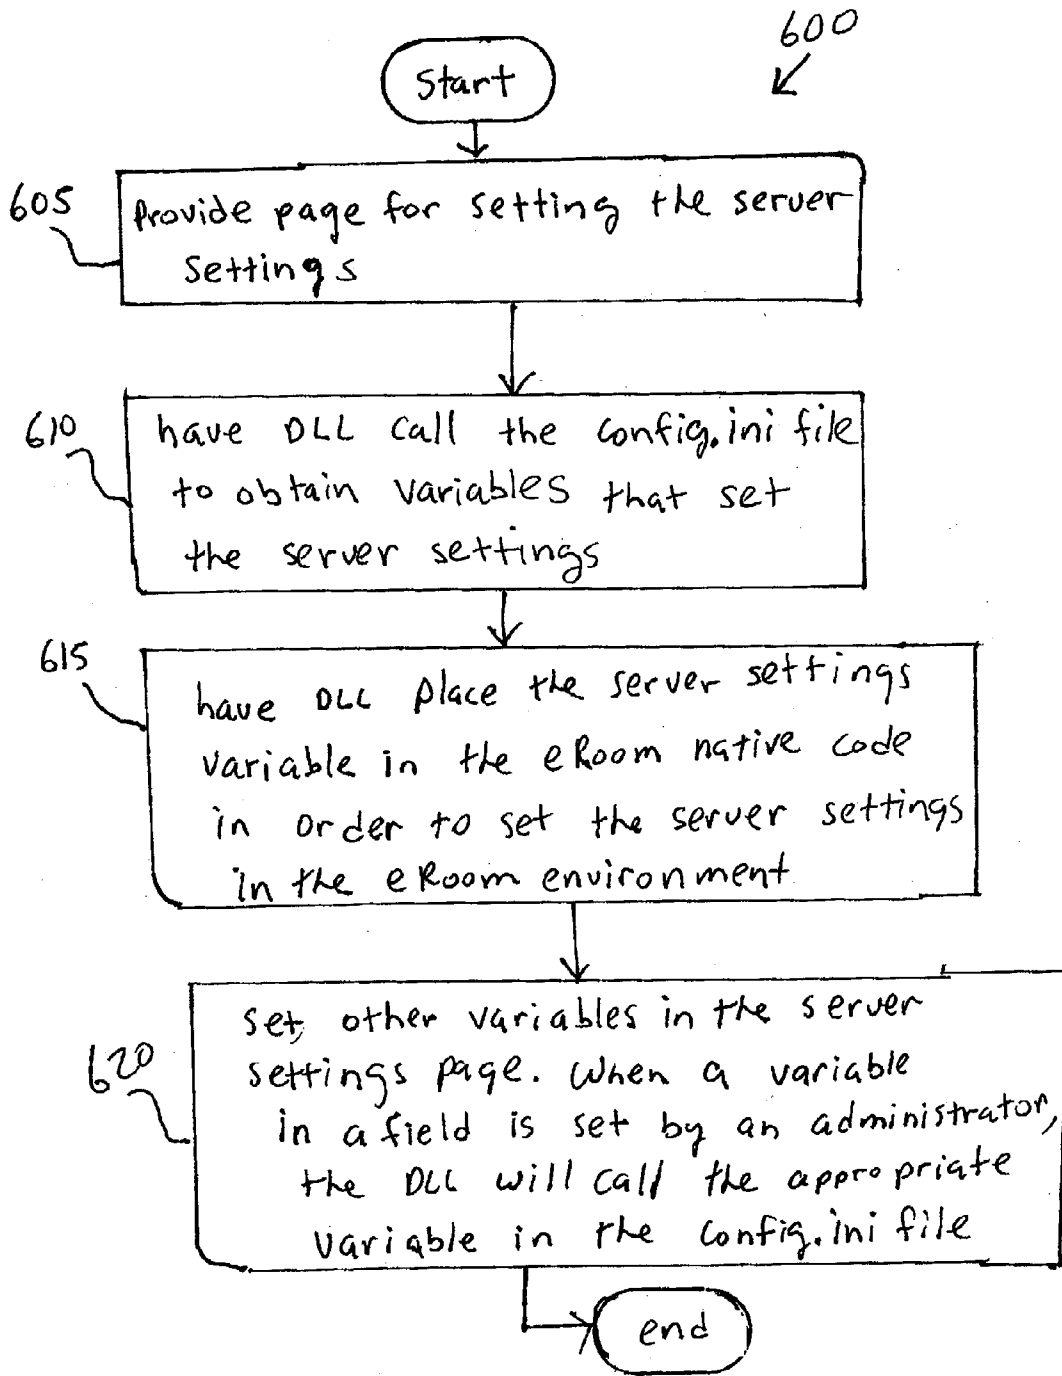 600
Start
605
Provide page for setting the server
settings
610
have DLL call the config.ini file
to obtain variables that set
the server settings
615
have DLL place the server settings
variable in the eRoom native code
in order to set the server settings
in the eRoom environment
620
set other variables in the server
settings page. When a variable
in a field is set by an administrator,
the DLL will call the appropriate
variable in the config.ini file
end